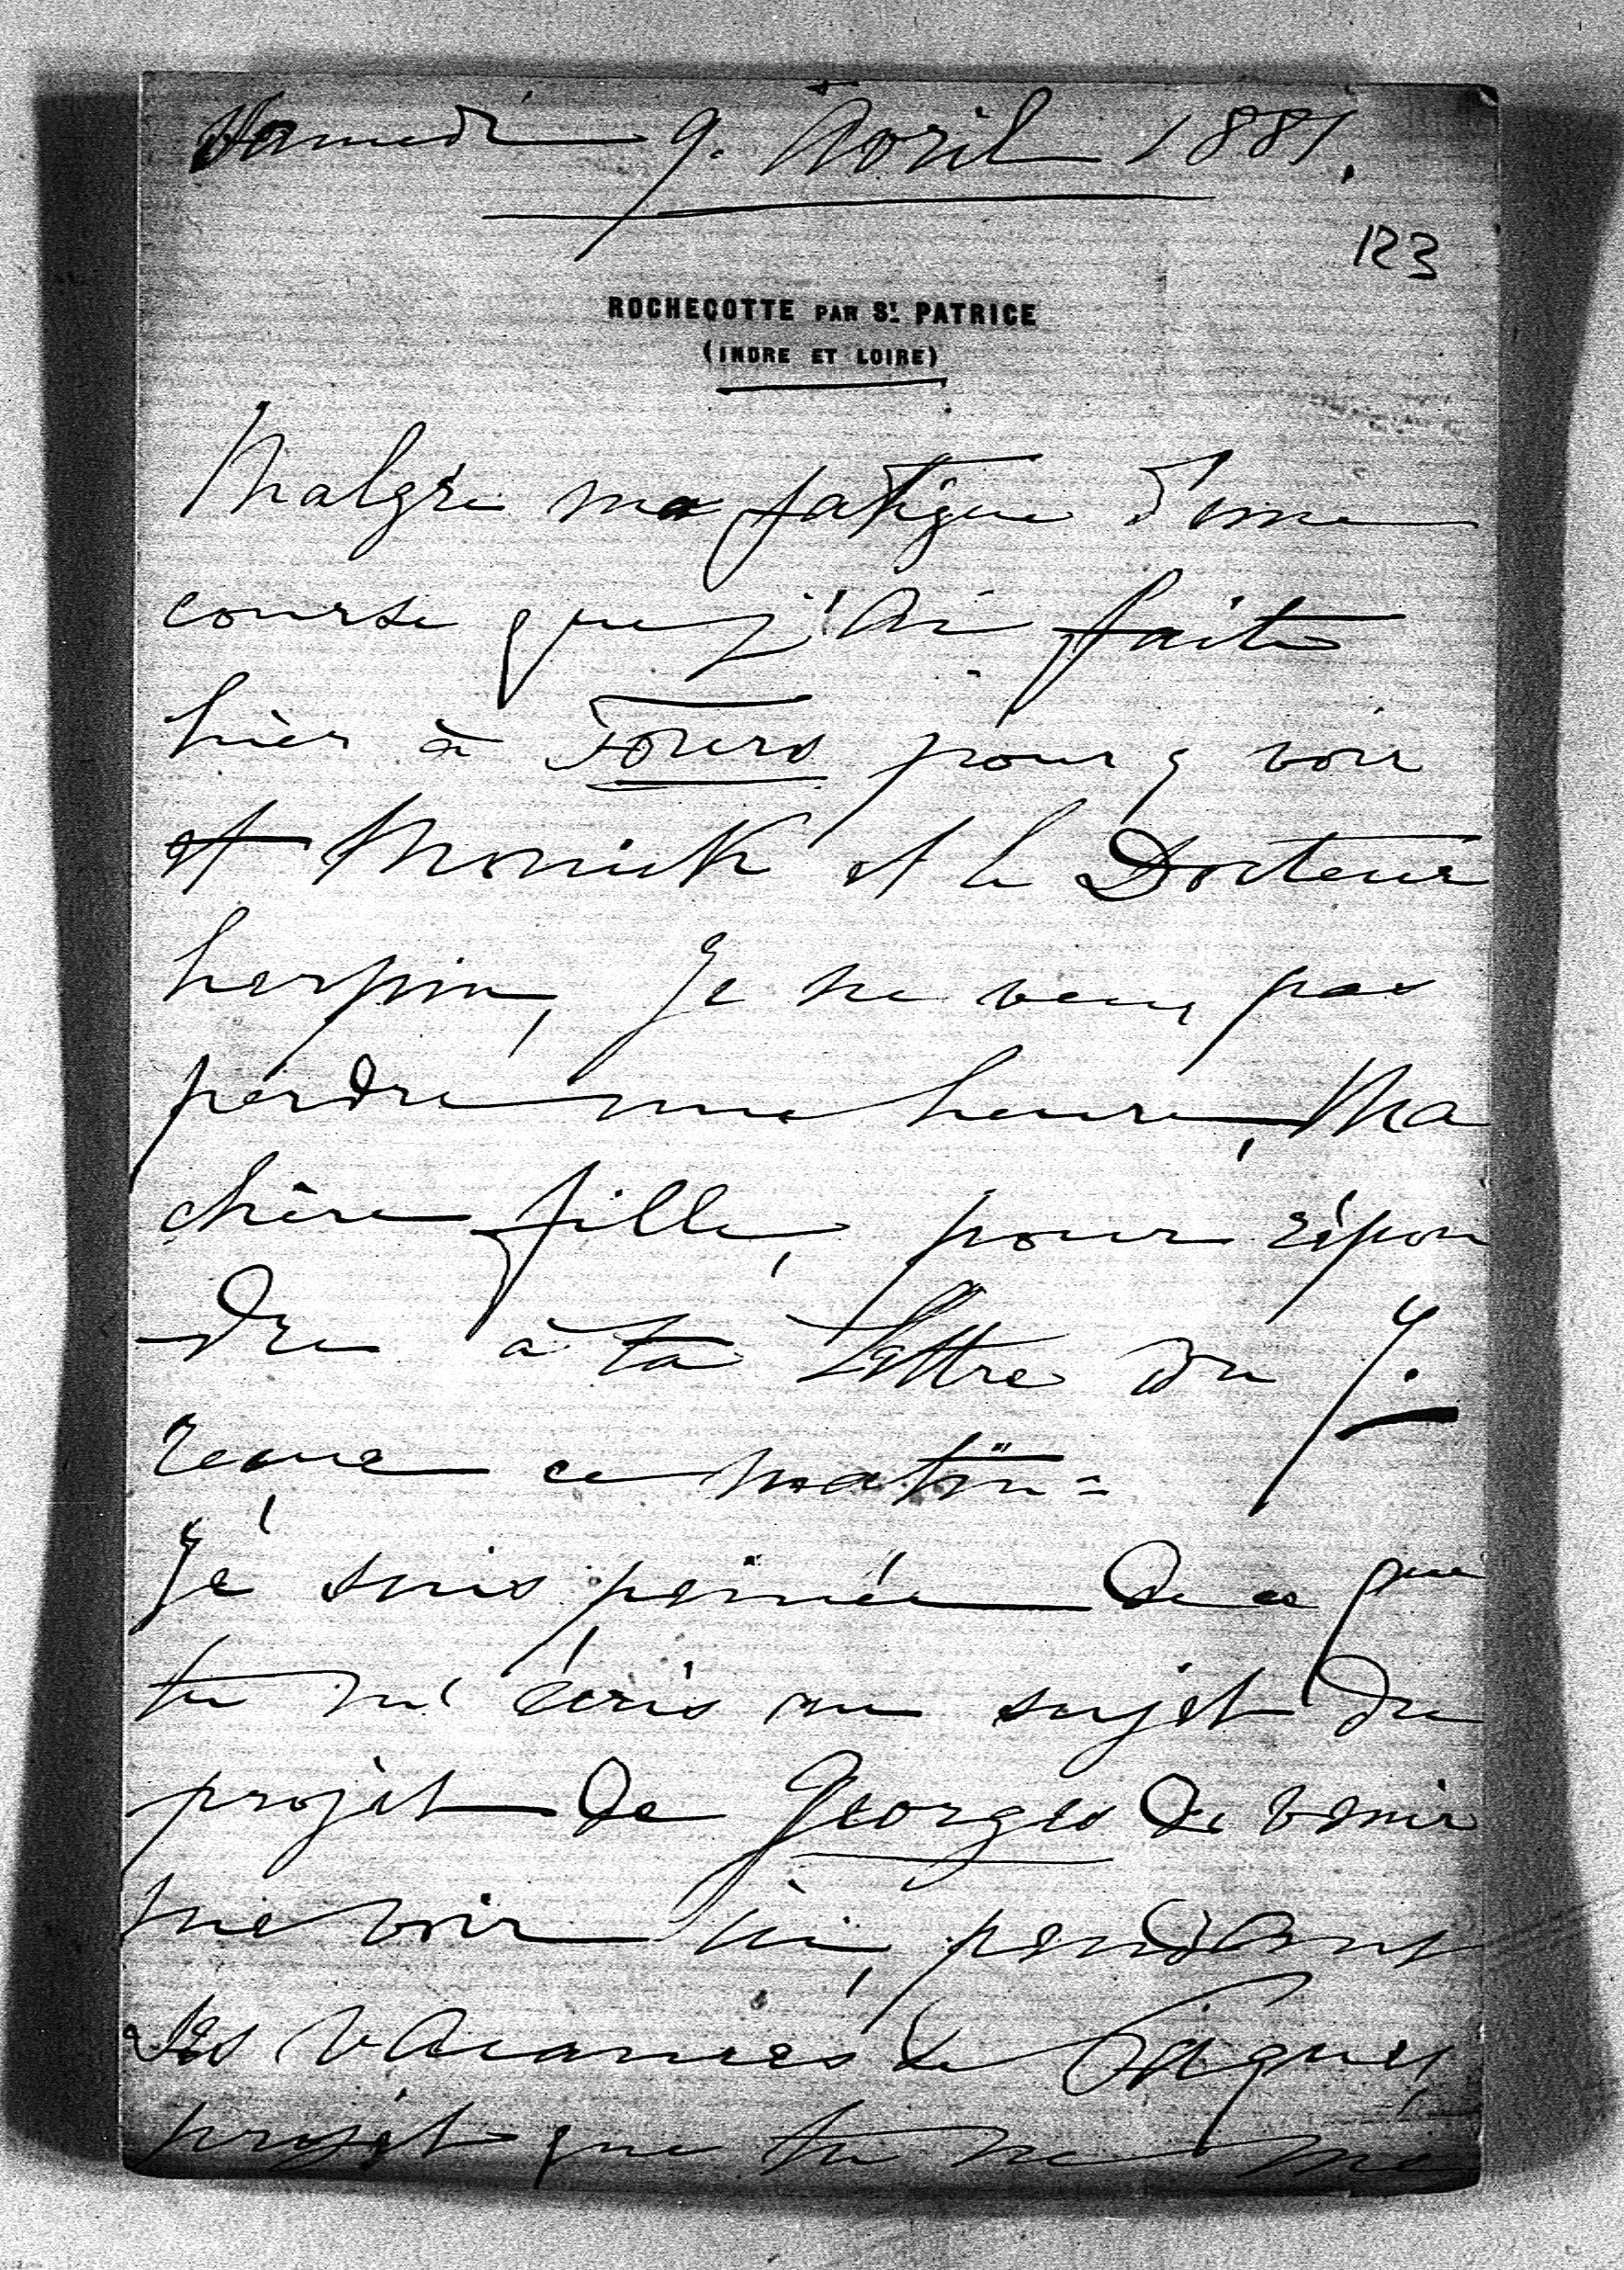 Samedi 9. Avril 1881.
123
ROCHECOTTE PAR ST. PATRICE
(INDRE ET LOIRE)
Malgré ma fatigue d'une
course que j'ai faite
hier à Tours pour y voir
et Monick et le Docteur
herpin, Je ne veux pas
perdre une heure, Ma
chère fille, pour répon
dre à ta Lettre du 7.
reçue ce matin =
Je suis peinée de ce que
tu m'écris au sujet du
projet de Georges de venir
me voir ici, pendant
les vacances de Pâques,
projet que tu ne me